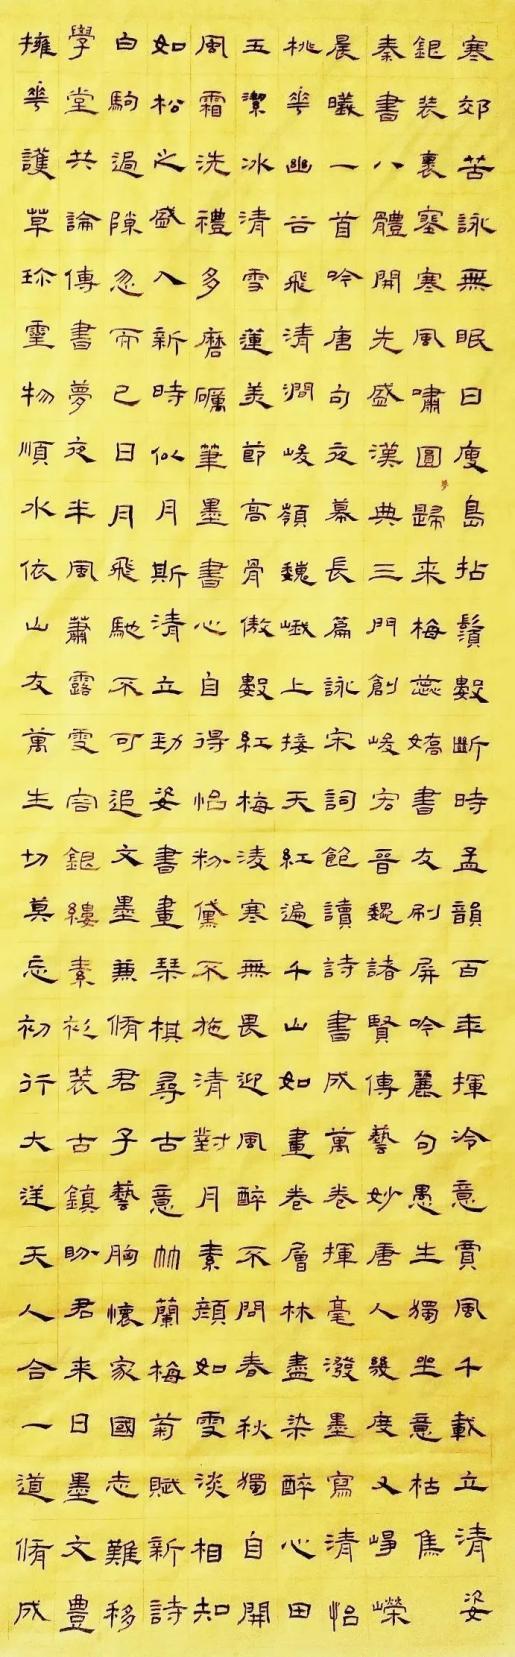 寒郊苦詠無眠日廋島拈鬚數斷時孟韻百年揮冷意賈風千載立清姿
銀装裹塞寒風嘯圓夢歸来梅蕊嬌書友刷屏吟麗句愚生獨坐意枯焦
秦書八體開先盛漢典三門創峻宏晉魏諸賢傳藝妙唐人幾度又崢嶸
晨曦一首吟唐句夜幕長篇詠宋詞飽讀詩書成萬卷揮毫潑墨寫清怡
桃華幽谷飛清澗峻嶺巍峨上接天紅遍千山如畫卷層林盡染醉心田
玉潔冰清雪蓮美節高骨傲數紅梅凌寒無畏迎風醉不問春秋獨自開
風霜洗禮多磨礪筆墨書心自得怡粉黛不施清對月素顏如雪淡相知
如松之盛入新時似月斯清立勁姿書畫琴棋尋古意竹蘭梅菊賦新詩
白駒過隙忽而已日月飛馳不可追文墨兼脩君子藝胸懷家國志難移
學堂共論傳書夢夜半風蕭露雯容銀縷素衫装古鎮助君来日墨文豊
擁華護草珎靈物順水依山友萬生切莫忘初行大天人合一道脩成